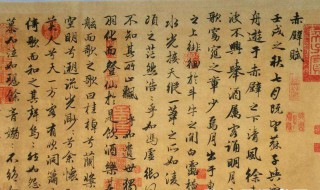 赤壁賦
壬戌之秋七月既望蘇子與
舟遊于赤壁之下清風徐
波不興舉酒屬客誦明月
歌窈窕之章少焉月出于東
之上徘徊於斗牛之間白露
水光接天縱一葦之所如凌
頃之茫然浩浩乎如馮虛御
不知其所止飄飄乎如遺世
羽化而登仙於是飲酒樂
舷而歌之歌曰桂棹兮蘭槳
空明兮泝流光渺渺兮余懷
人兮天一方客有吹洞簫
倚歌而和之其聲嗚嗚然如怨
慕如泣如訴餘音嫋嫋不絕